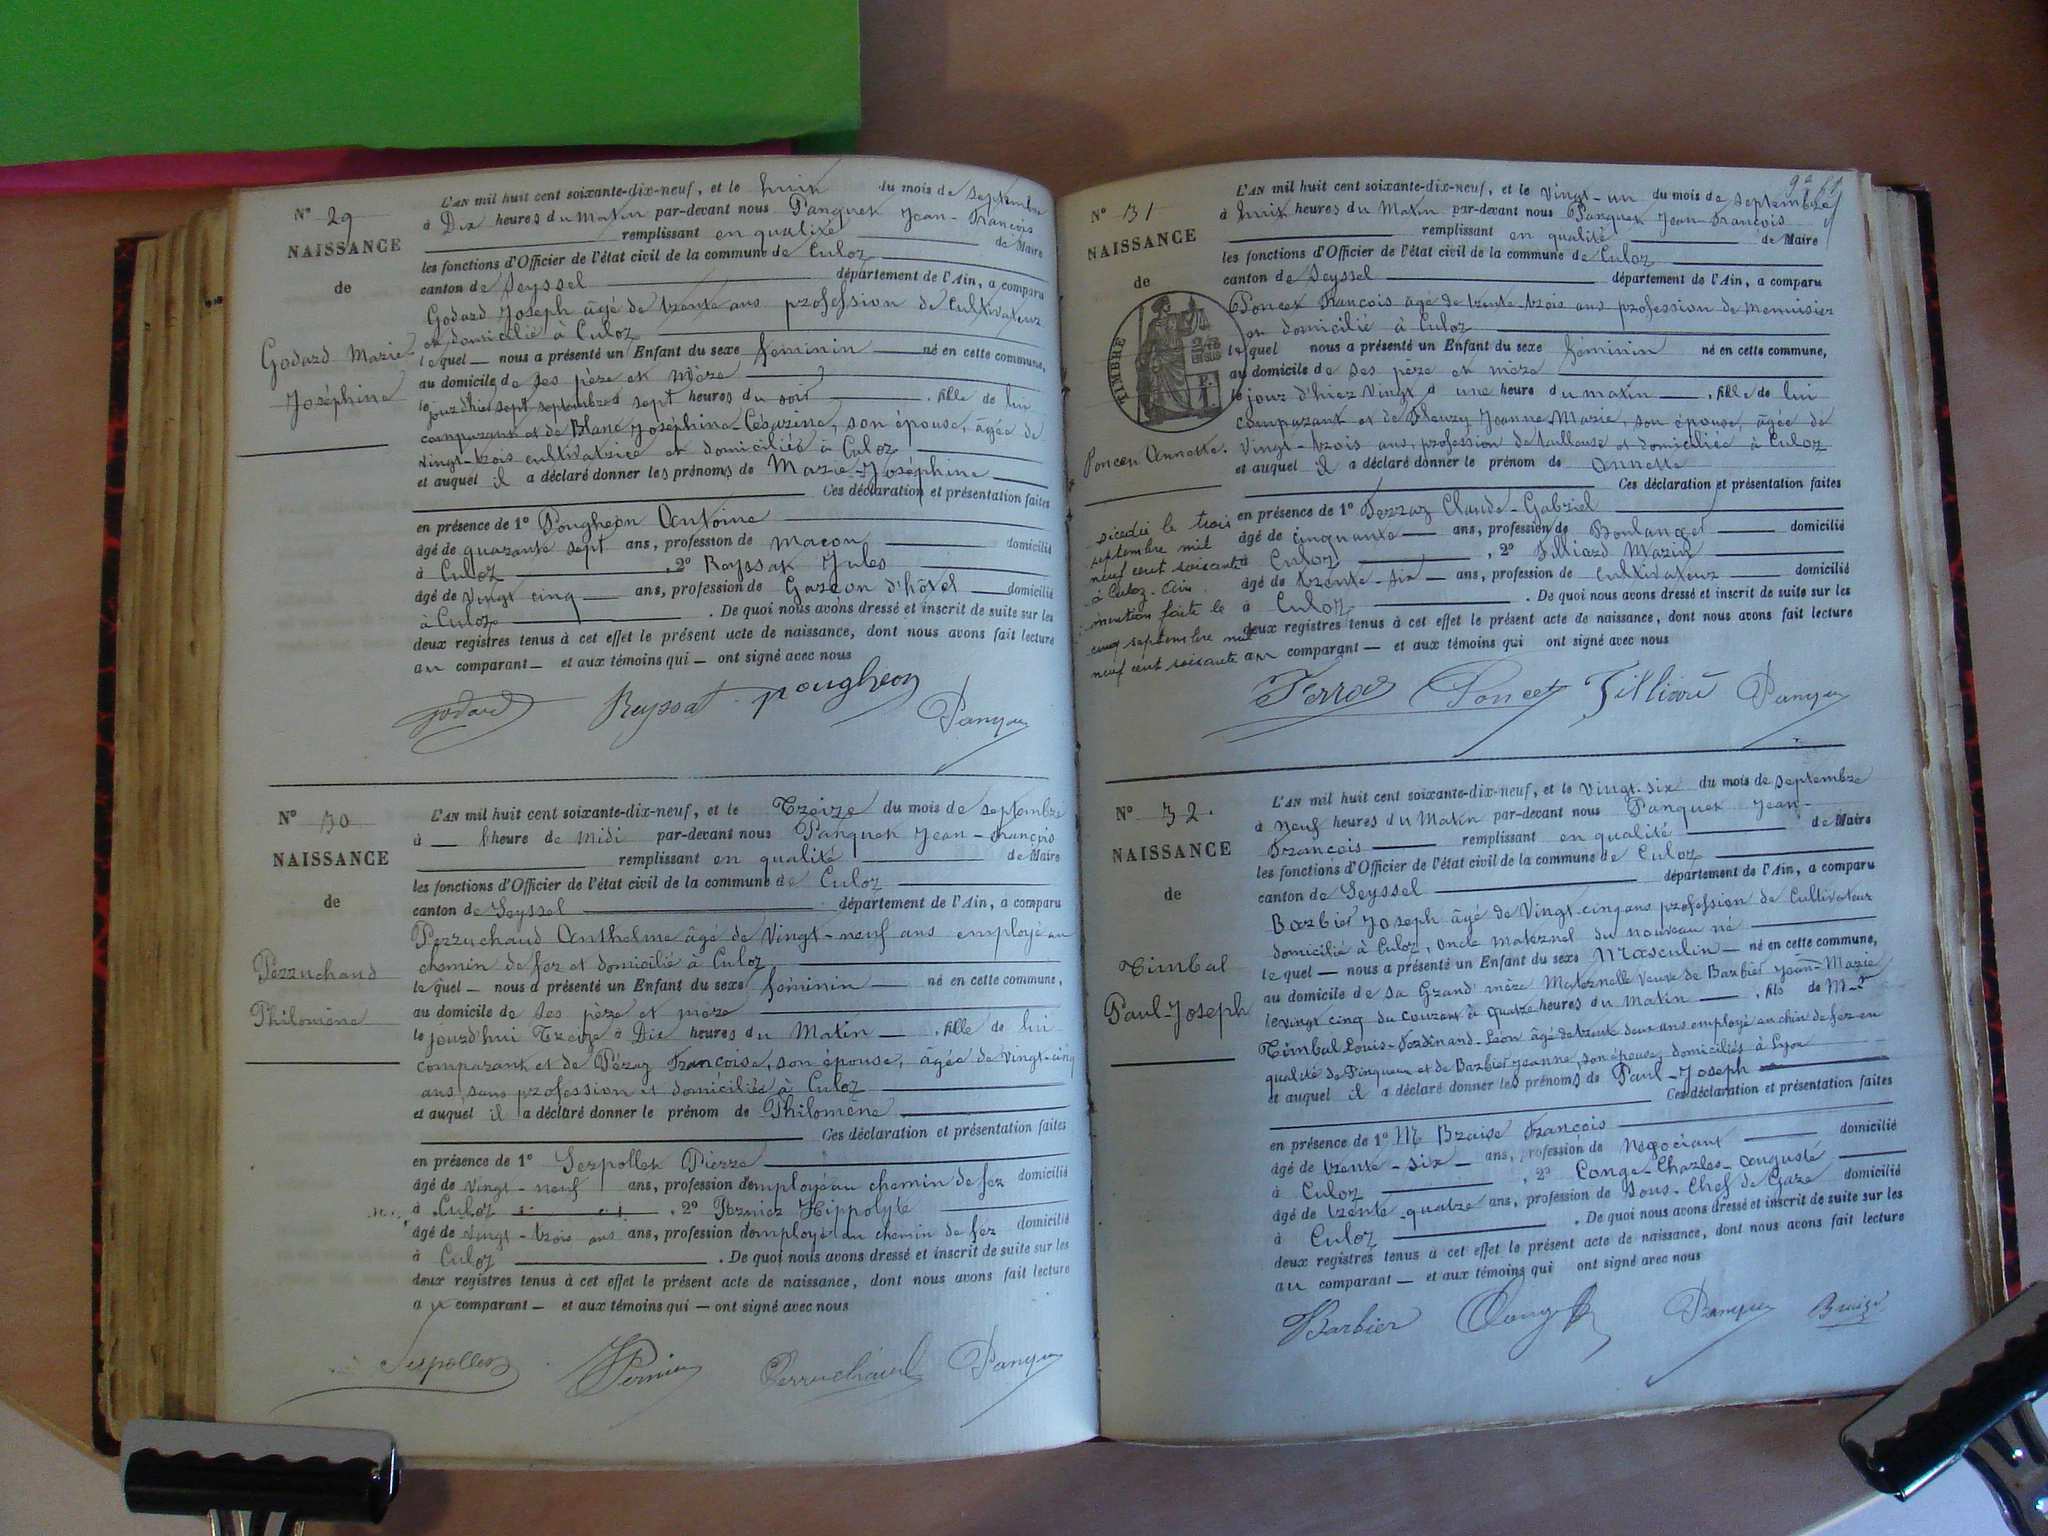 N° 29
NAISSANCE
de
Godard Marie
Joséphine
L'AN mil huit cent soixante-dix-neuf, et le huit du mois de septembre
à Dix heures du Matin par-devant nous Panquet Jean-François
remplissant en qualité de Maire
les fonctions d'Officier de l'état civil de la commune de Culoz
canton de Seyssel département de l'Ain, a comparu
Godard Joseph âgé de trente ans profession de Cultivateur
et domicilié à Culoz
lequel nous a présenté un Enfant du sexe féminin né en cette commune,
au domicile de ses père et mère
le jour d'hier sept septembre à sept heures du soir, fille de lui
comparant et de Blanc Joséphine-Césarine, son épouse, âgée de
vingt-trois cultivatrice et domiciliée à Culoz
et auquel il a déclaré donner les prénoms de Marie-Joséphine
Ces déclaration et présentation faites
en présence de 1° Pougheon Antoine
âgé de quarante sept ans, profession de maçon domicilié
à Culoz, 2° Reyssat Jules
âgé de vingt cinq ans, profession de Garçon d'hôtel domicilié
à Culoz. De quoi nous avons dressé et inscrit de suite sur les
deux registres tenus à cet effet le présent acte de naissance, dont nous avons fait lecture
au comparant et aux témoins qui ont signé avec nous
Godard Reyssat pougheon Panquet
N° 30
NAISSANCE
de
Perruchaud
Philomène
L'AN mil huit cent soixante-dix-neuf, et le Treize du mois de septembre
à heure de Midi par-devant nous Panquet Jean-François
remplissant en qualité de Maire
les fonctions d'Officier de l'état civil de la commune de Culoz
canton de Seyssel département de l'Ain, a comparu
Perruchaud Anthelme âgé de Vingt-neuf ans employé au
chemin de fer et domicilié à Culoz
lequel nous a présenté un Enfant du sexe féminin né en cette commune,
au domicile de ses père et mère
le jourd'hui Treize à Dix heures du Matin, fille de lui
comparant et de Péraz Françoise, son épouse, âgée de vingt-cinq
ans, sans profession et domiciliée à Culoz
et auquel il a déclaré donner le prénom de Philomène
Ces déclaration et présentation faites
en présence de 1° Serpollet Pierre
âgé de vingt-neuf ans, profession d'employé au chemin de fer domicilié
à Culoz, 2° Pernier Hippolyte
âgé de vingt-trois ans ans, profession d'employé du chemin de fer domicilié
à Culoz. De quoi nous avons dressé et inscrit de suite sur les
deux registres tenus à cet effet le présent acte de naissance, dont nous avons fait lecture
au comparant et aux témoins qui ont signé avec nous
Serpollet Pernier Perruchaud Panquet
N° 31
NAISSANCE
de
TIMBRE
Poncet Annette.
décédée le trois
septembre mil
neuf cent soixante
à Culoz-Ain.
mention faite le
cinq septembre mil
neuf cent soixante
L'AN mil huit cent soixante-dix-neuf, et le Vingt-un du mois de septembre
à huit heures du Matin par-devant nous Panquet Jean-François
remplissant en qualité de Maire
les fonctions d'Officier de l'état civil de la commune de Culoz
canton de Seyssel département de l'Ain, a comparu
Poncet François âgé de trente-trois ans profession de menuisier
et domicilié à Culoz
lequel nous a présenté un Enfant du sexe féminin né en cette commune,
au domicile de ses père et mère
le jour d'hier Vingt à une heure du matin, fille de lui
comparant et de Fleury Jeanne Marie, son épouse, âgée de
Vingt-trois ans, profession de tailleuse et domiciliée à Culoz
et auquel il a déclaré donner le prénom de Annette
Ces déclaration et présentation faites
en présence de 1° Ferraz Claude-Gabriel
âgé de cinquante ans, profession de Boulanger domicilié
à Culoz, 2° Tilliard Marin
âgé de trente-six ans, profession de cultivateur domicilié
à Culoz. De quoi nous avons dressé et inscrit de suite sur les
deux registres tenus à cet effet le présent acte de naissance, dont nous avons fait lecture
au comparant et aux témoins qui ont signé avec nous
Ferraz Poncet Tilliard Panquet
N° 32.
NAISSANCE
de
Timbal
Paul-Joseph
L'AN mil huit cent soixante-dix-neuf, et le Vingt-six du mois de septembre
à Neuf heures du Matin par-devant nous Panquet Jean-
François remplissant en qualité de Maire
les fonctions d'Officier de l'état civil de la commune de Culoz
canton de Seyssel département de l'Ain, a comparu
Barbier Joseph âgé de Vingt-cinq ans profession de Cultivateur
domicilié à Culoz, oncle maternel du nouveau né
lequel nous a présenté un Enfant du sexe Masculin né en cette commune,
au domicile de sa Grand'mère Maternelle Veuve de Barbier Jean-Marie
le vingt cinq du courant à quatre heures du Matin, fils de Mr
Timbal Louis-Ferdinand-Léon âgé de trente deux ans employé au chin de fer en
qualité de Piqueur et de Barbier Jeanne, son épouse domiciliés à Lyon
et auquel il a déclaré donner les prénoms de Paul-Joseph
Ces déclaration et présentation faites
en présence de 1° M Braise François
âgé de trente-six ans, profession de Négociant domicilié
à Culoz, 2° Conge-Charles-Auguste
âgé de trente-quatre ans, profession de Sous-Chef de Gare domicilié
à Culoz. De quoi nous avons dressé et inscrit de suite sur les
deux registres tenus à cet effet le présent acte de naissance, dont nous avons fait lecture
au comparant et aux témoins qui ont signé avec nous
Barbier Panquet Braise